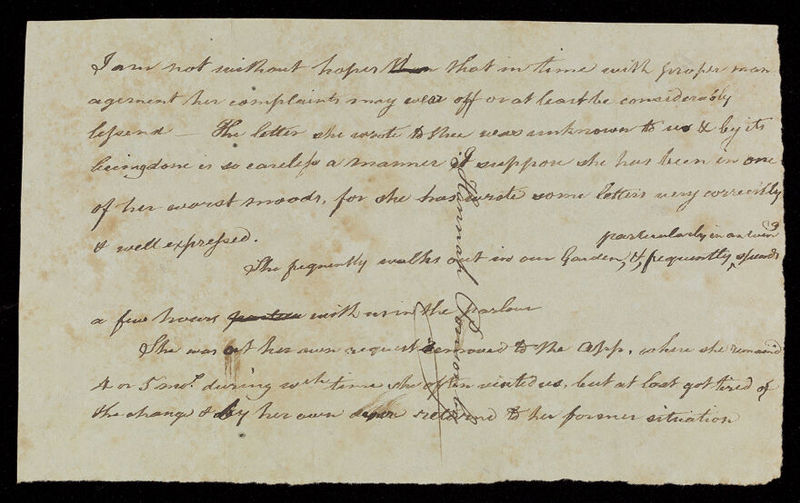 I am not without hopes then that in time with proper man
agement her complaints may wear off or at least be considerably
lessend — The letter she wrote to thee was unknown to us & by its
being done in so careless a manner I suppose she has been in one
of her worst moods, for she has wrote some letters very correctly
& well expressed.
particularly in an eveng
She frequently walks out in our Garden, & frequently spends
a few hours with us in the parlour
She was at her own request removed to the App, where she remaind
4 or 5 mos. during wch time she often visited us, but at last got tired of
the change & by her own desire returned to her former situation
Hannah Ponsonby